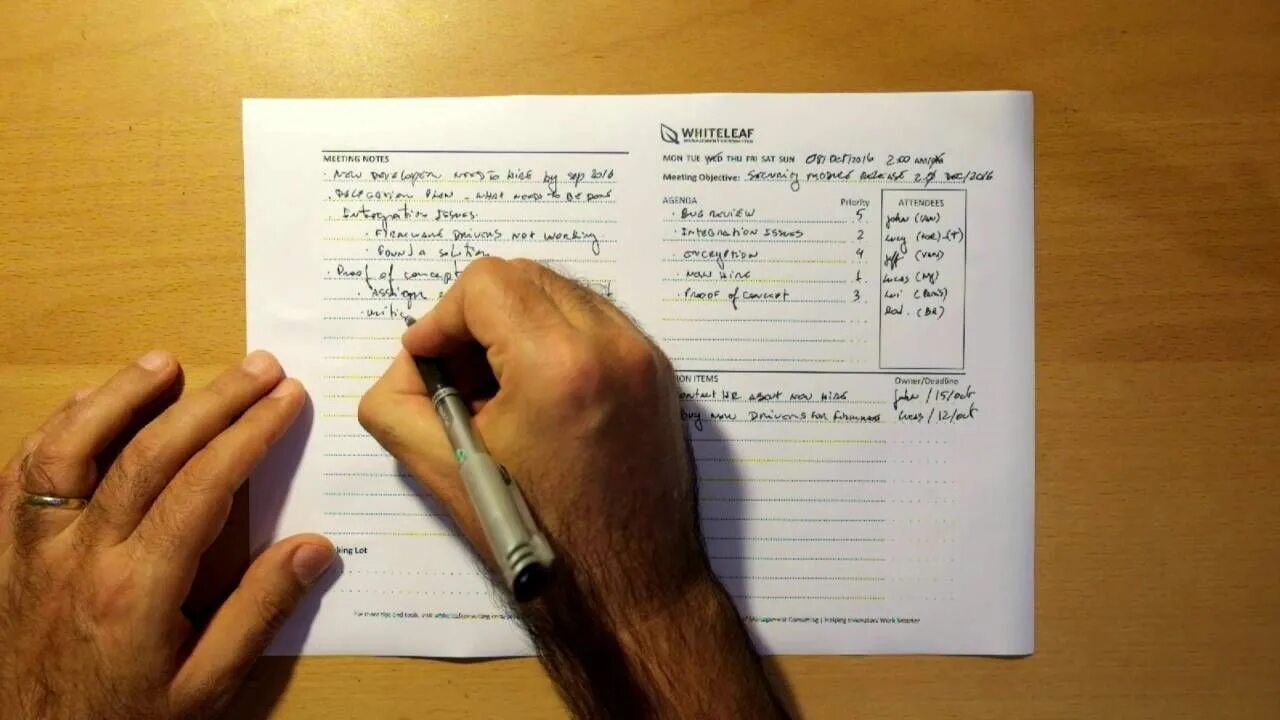 MEETING NOTES
· NEW DEVELOPER NEEDS TO HIRE by SEP 2016
· DELEGATION PLAN - WHAT NEEDS TO BE DONE
· INTEGRATION ISSUES
· FIRMWARE DRIVERS NOT WORKING
· FOUND A SOLUTION
· PROOF OF CONCEPT
· ASSIGN
king Lot
WHITELEAF
MANAGEMENT CONSULTING
MON TUE WED THU FRI SAT SUN 08/OCT/2016 2:00 AM/PM
Meeting Objective: SECURITY MODULE RELEASE 2.0 DEC/2016
AGENDA Priority
· BUG REVIEW 5
· INTEGRATION ISSUES 2
· ENCRYPTION 4
· NEW HIRE 1
· PROOF OF CONCEPT 3
ATTENDEES
John (VAN)
Lucy (TOR)-(T)
Jeff (VAN)
Lucas (NY)
Lui (PARIS)
Rod. (BR)
ION ITEMS Owner/Deadline
ontact HR ABOUT NEW HIRE John / 15/oct
Buy NEW DRIVERS FOR FIRMWARE Lucas / 12/oct
For more tips and tools, visit whiteleafconsulting.com
Management Consulting | Helping Innovators Work Smarter